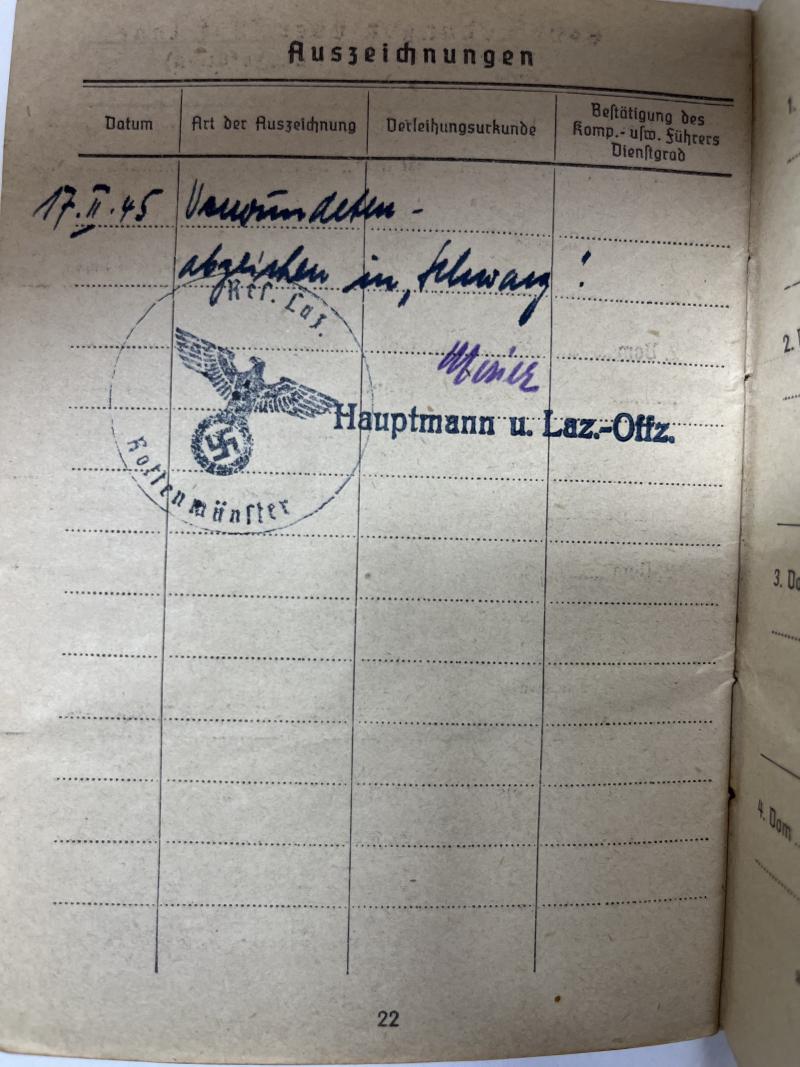 Auszeichnungen
Datum
Art der Auszeichnung
Verleihungsurkunde
Bestätigung des
Komp.- usw. Führers
Dienstgrad
17.II.45 Verwundeten-
abzeichen in „Schwarz“
Res. Laz.
Rottenmünster
Hauptmann u. Laz.-Offz.
22
1.
2.
3. Do
4. Dom